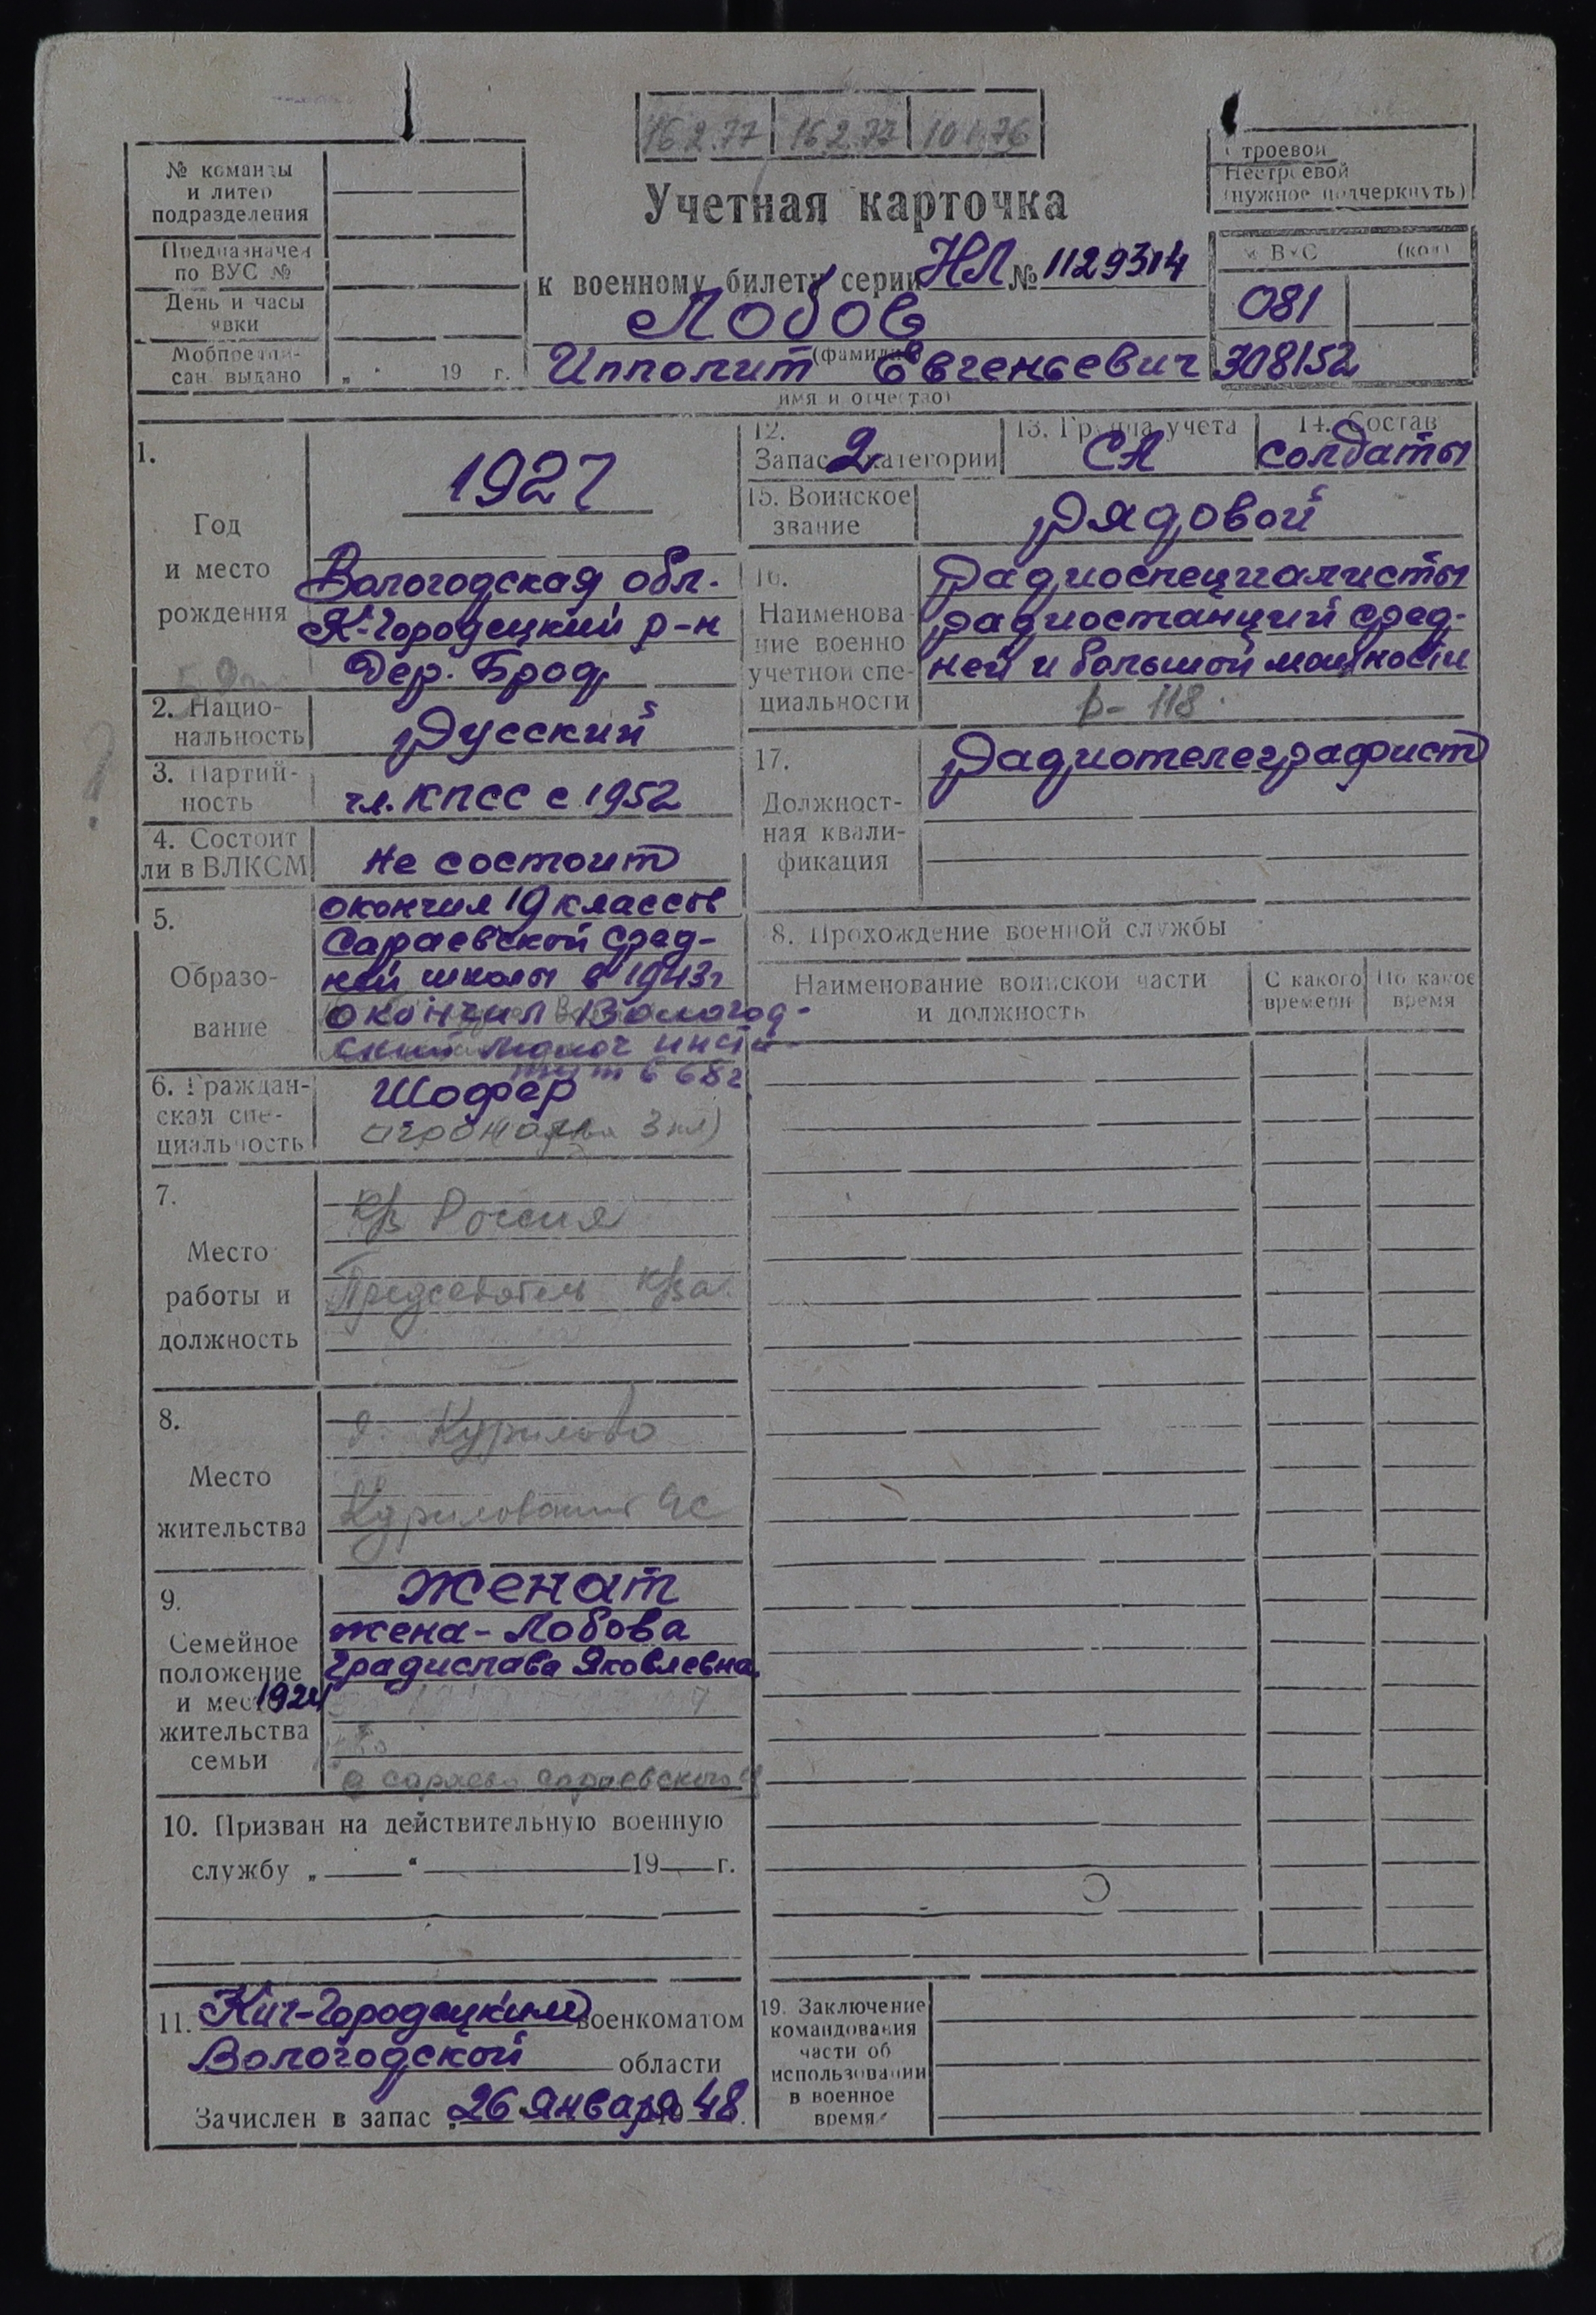 16.2.77 16.2.77
№ команды
и литер
подразделения
Предназначен
по ВУС №
День и часы
явки
Мобпредпи-
сан. выдано „ " 19 г.
Учетная карточка
к военному билету серии НЛ № 1129314
Лобов
(фамилия)
Ипполит Евгеньевич
имя и отчество)
Строевой
Нестроевой
(нужное подчеркнуть)
№ ВУС (код)
081
308152
1.
Год
и место
рождения
1927
Вологодская обл.
К-Городецкий р-н
дер. Брод
2. Нацио-
нальность
Русский
3. Партий-
ность
чл. КПСС с 1952
4. Состоит
ли в ВЛКСМ
не состоит
5.
Образо-
вание
окончил 10 классов
Сараевской сред-
ней школы в 1943г
окончил Вологод-
ский молоч инсти-
тут в 68г
6. Граждан-
ская спе-
циальность
Шофер
агроном 3 кл)
7.
Место
работы и
должность
К/з Россия
Председатель к/за
8.
Место
жительства
д. Курилово
Куриловский с
9.
Семейное
положение
и место
жительства
семьи
женат
жена - Лобова
Градислава Яковлевна
1924
с сараево сараевского
10. Призван на действительную военную
службу „ “ 19 г.
11. Кич-Городецким военкоматом
Вологодской области
Зачислен в запас „26 Января 19 48.
12.
Запас 2 категории
13. Группа учета
СА
14. Состав
солдаты
15. Воинское
звание
Рядовой
16.
Наименова-
ние военно
учетной спе-
циальности
Радиоспециалисты
радиостанций сред-
ней и большой мощности
р-118
17.
Должност-
ная квали-
фикация
Радиотелеграфист
8. Прохождение военной службы
Наименование воинской части
и должность
С какого
времени
По какое
время
19. Заключение
командования
части об
использовании
в военное
время